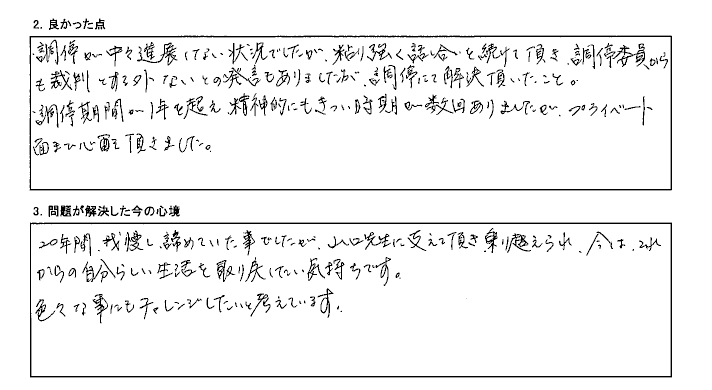 2. 良かった点
調停が中々進展しない状況でしたが、粘り強く話し合いを続けて頂き、調停委員から
も裁判とする外ないとの発言もありましたが、調停にて解決頂いたこと。
調停期間が1年を超え精神的にもきつい時期が数回ありましたが、プライベート
面まで心配頂きました。
3. 問題が解決した今の心境
20年間、我慢し諦めていた事でしたが、山口先生に支えて頂き乗り越えられ、今は、これ
からの自分らしい生活を取り戻したい気持ちです。
色々な事にもチャレンジしたいと考えています。